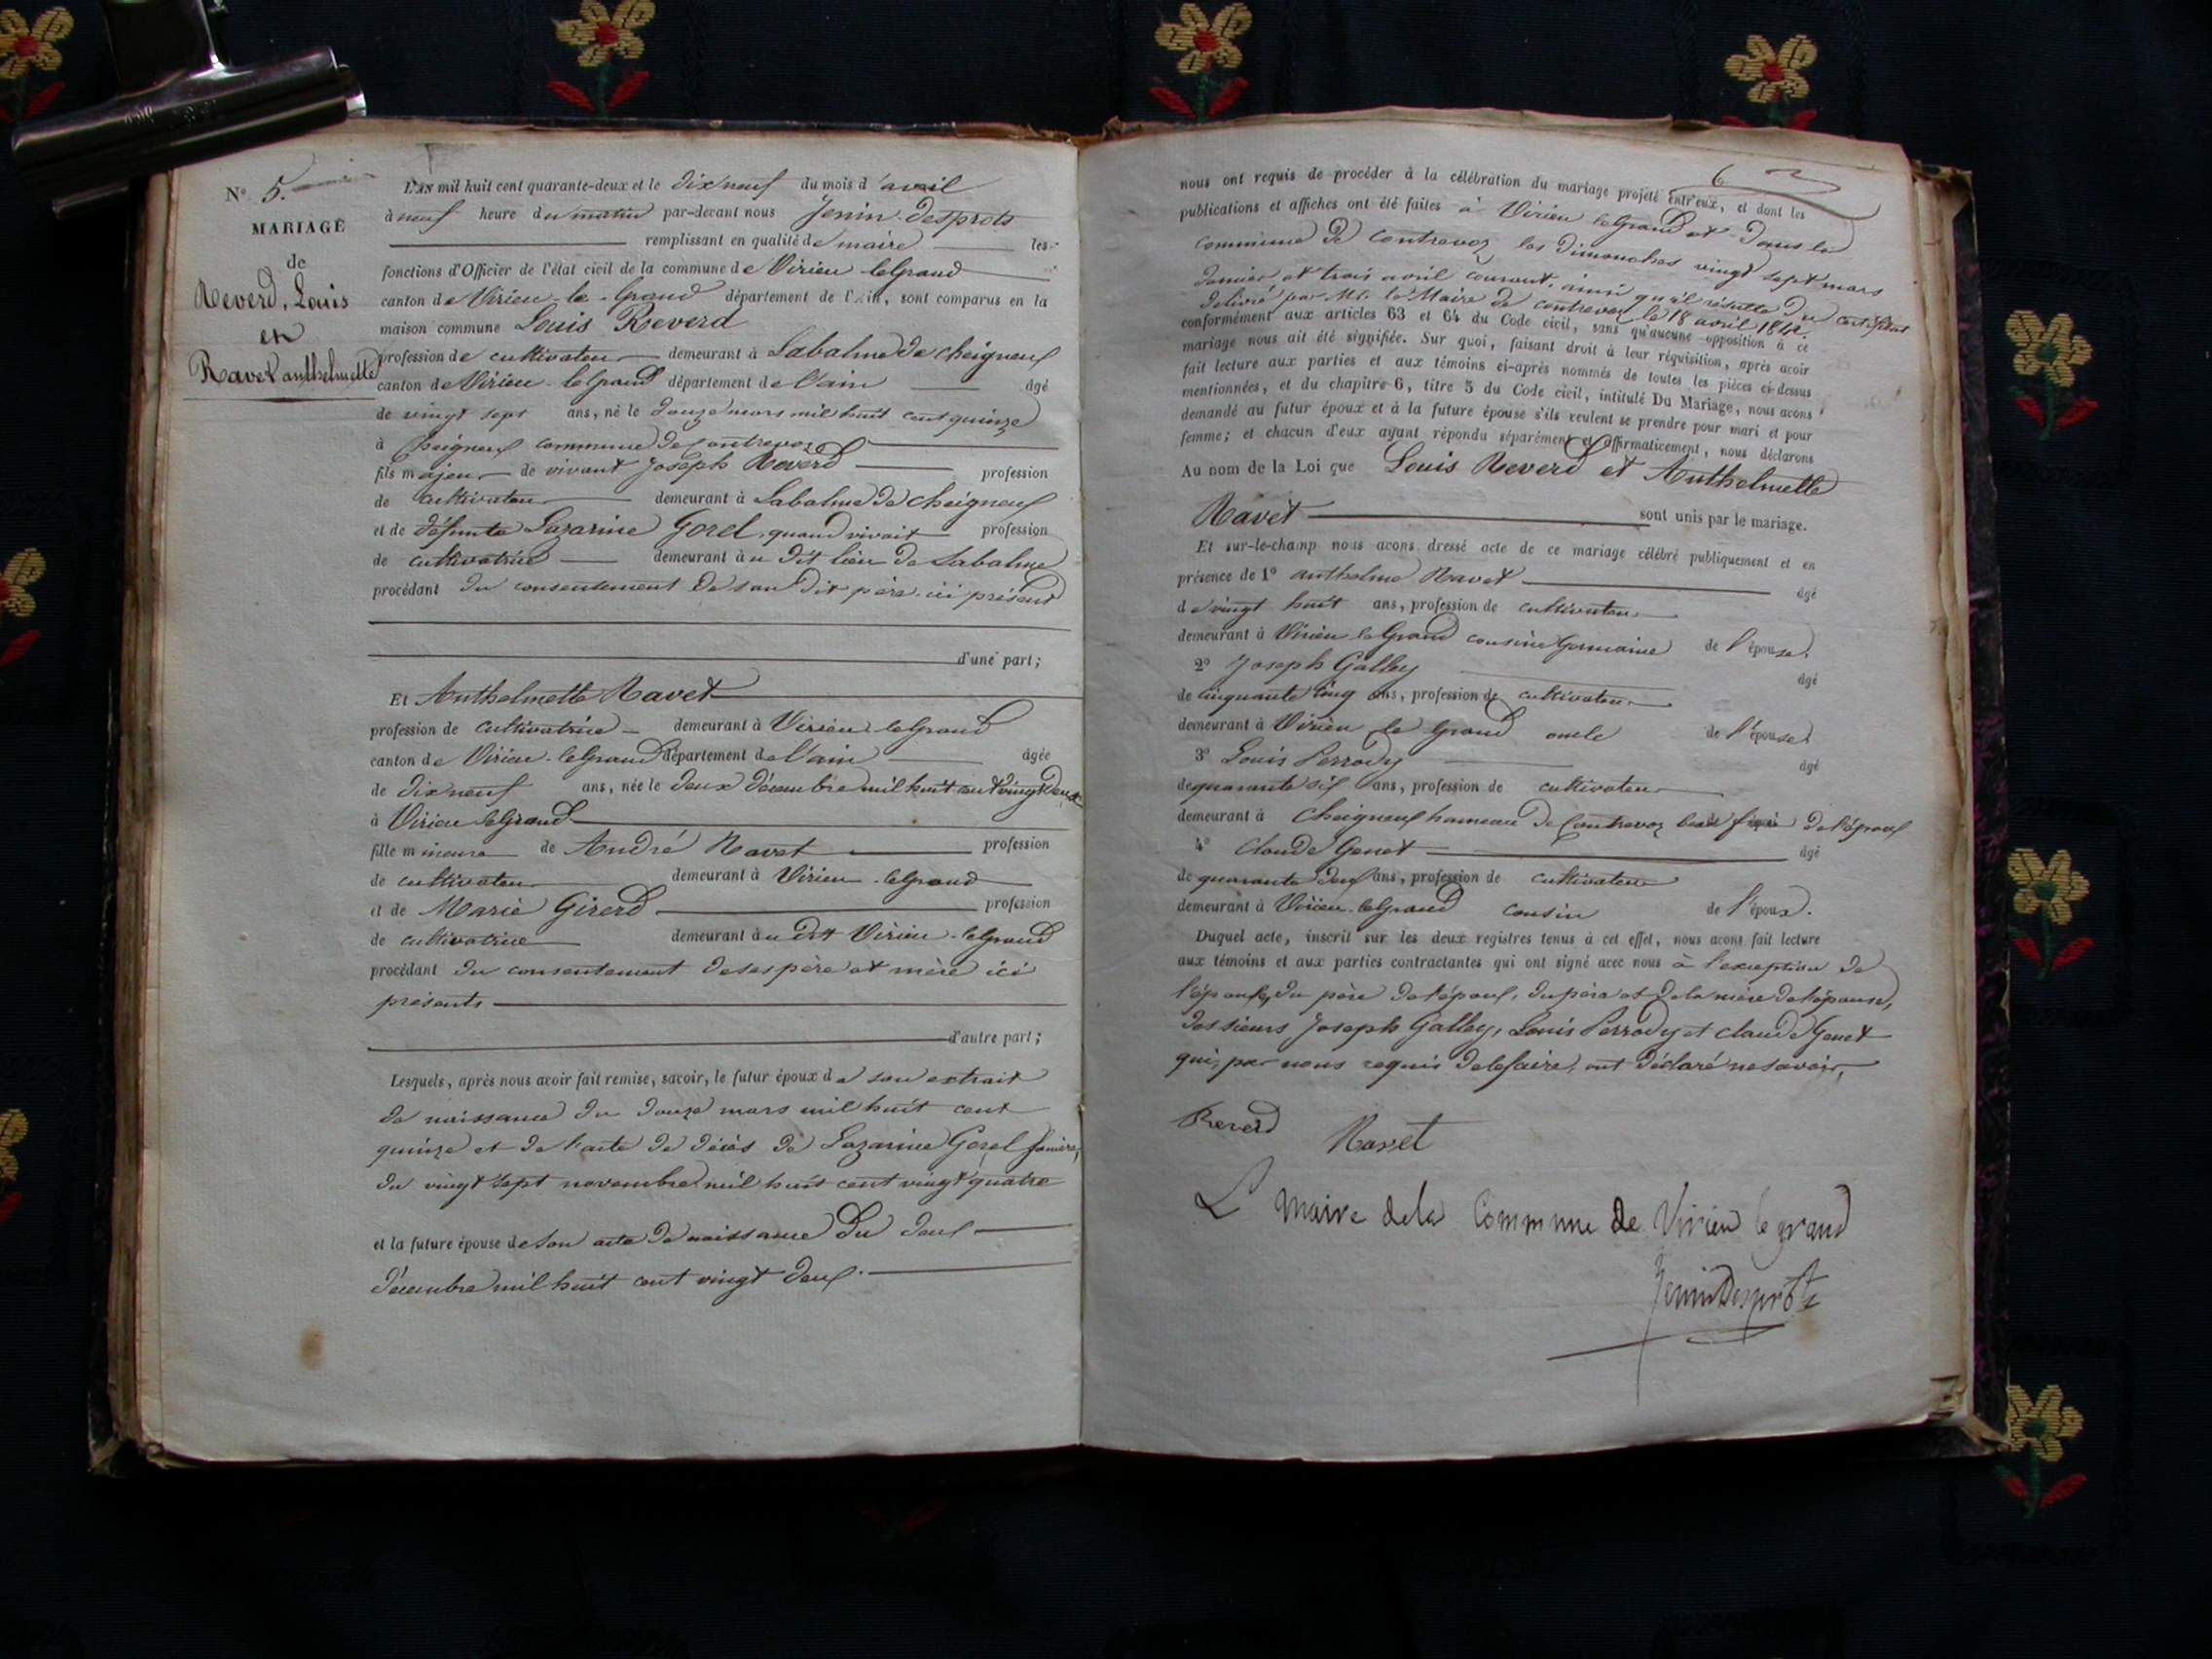 N° 5.
MARIAGE
de
Reverd, Louis
et
Ravet anthelmette
L'an mil huit cent quarante-deux et le dix neuf du mois d'avril
à neuf heure du matin par-devant nous Jenin-Desprots
remplissant en qualité de maire les
fonctions d'Officier de l'état civil de la commune de Virieu leGrand
canton de Virieu-le-Grand département de l'Ain, sont comparus en la
maison commune Louis Reverd
profession de cultivateur demeurant à Labalme de cheigneux
canton de Virieu-leGrand département de l'ain âgé
de vingt sept ans, né le douze mars mil huit cent quinze
à Cheigneux commune de Contrevoz
fils majeur de vivant Joseph Reverd profession
de cultivateur demeurant à Labalme de cheigneux
et de défunte Lazarine Gorel, quand vivait profession
de cultivatrice demeurant au dit lieu de Labalme
procédant du consentement de son dit père ici présent
d'une part;
Et Anthelmette Ravet
profession de cultivatrice demeurant à Virieu leGrand
canton de Virieu-leGrand département de l'ain âgée
de dix neuf ans, née le deux décembre mil huit cent vingt deux
à Virieu leGrand
fille mineure de André Ravet profession
de cultivateur demeurant à Virieu-leGrand
et de Marie Girerd profession
de cultivatrice demeurant au dit Virieu-leGrand
procédant du consentement de ses père et mère ici
présents
d'autre part;
Lesquels, après nous avoir fait remise, savoir, le futur époux de son extrait
de naissance du douze mars mil huit cent
quinze et de l'acte de décès de Lazarine Gorel sa mère,
du vingt sept novembre mil huit cent vingt quatre
et la future épouse de son acte de naissance du deux
décembre mil huit cent vingt deux.
6
nous ont requis de procéder à la célébration du mariage projeté entr'eux, et dont les
publications et affiches ont été faites à Virieu leGrand et dans la
commune de Contrevoz les dimanches vingt sept mars
dernier et trois avril courant, ainsi qu'il résulte du certificat
délivré par Mr. le Maire de contrevoz le 18 avril 1842
conformément aux articles 63 et 64 du Code civil, sans qu'aucune opposition à ce
mariage nous ait été signifiée. Sur quoi, faisant droit à leur réquisition, après avoir
fait lecture aux parties et aux témoins ci-après nommés de toutes les pièces ci-dessus
mentionnées, et du chapitre 6, titre 5 du Code civil, intitulé Du Mariage, nous avons
demandé au futur époux et à la future épouse s'ils veulent se prendre pour mari et pour
femme; et chacun d'eux ayant répondu séparément et affirmativement, nous déclarons
Au nom de la Loi que Louis Reverd et Anthelmette
Ravet sont unis par le mariage.
Et sur-le-champ nous avons dressé acte de ce mariage célébré publiquement et en
présence de 1° anthelme Ravet âgé
de vingt huit ans, profession de cultivateur
demeurant à Virieu leGrand cousin Germain de l'épouse.
2° Joseph Galley âgé
de cinquante cinq ans, profession de cultivateur
demeurant à Virieu le Grand oncle de l'épouse.
3° Louis Perrody âgé
de quarante six ans, profession de cultivateur
demeurant à Cheigneux hameau de Contrevoz beau frère de l'époux
4° Claude Genet âgé
de quarante deux ans, profession de cultivateur
demeurant à Virieu-leGrand cousin de l'époux.
Duquel acte, inscrit sur les deux registres tenus à cet effet, nous avons fait lecture
aux témoins et aux parties contractantes qui ont signé avec nous à l'exception de
l'épouse, du père de l'époux, du père et de la mère de l'épouse,
des sieurs Joseph Galley, Louis Perrody et claude Genet
qui, par nous requis de le faire, ont déclaré ne savoir,
Reverd Ravet
Le maire de la Commune de Virieu le grand
JeninDesprots